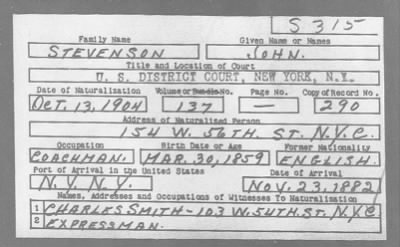 S 315
Family Name Given Name or Names
STEVENSON JOHN.
Title and Location of Court
U. S. DISTRICT COURT, NEW YORK, N.Y.
Date of Naturalization Volume or Bundle No. Page No. Copy of Record No.
OCT. 13, 1904 137 — 290
Address of Naturalized Person
154 W. 56TH. ST. N.Y.C.
Occupation Birth Date or Age Former Nationality
COACHMAN. MAR. 30, 1859 ENGLISH.
Port of Arrival in the United States Date of Arrival
N.Y. N.Y. NOV. 23, 1882
Names, Addresses and Occupations of Witnesses To Naturalization
1 CHARLES SMITH - 103 W. 54TH. ST. N.Y.C
2 EXPRESSMAN.